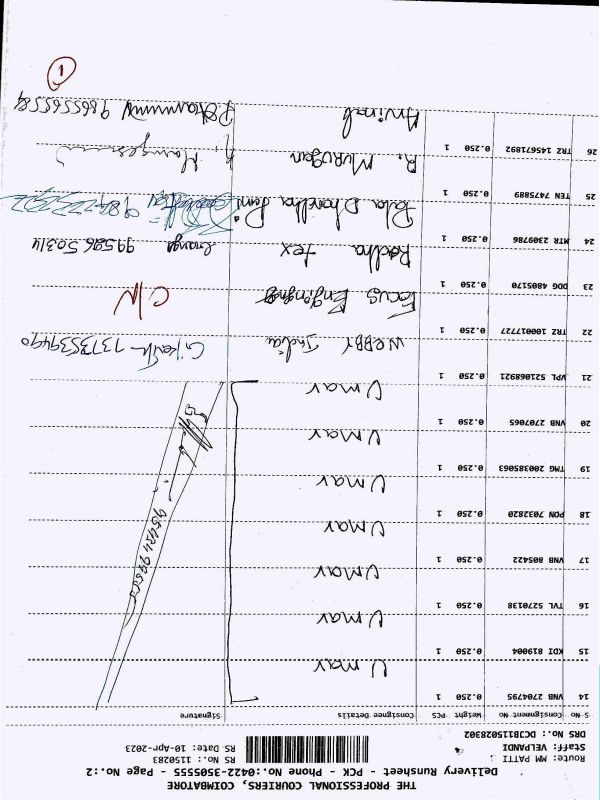 THE PROFESSIONAL COURIERS, COIMBATORE
Delivery Runsheet - PCK - Phone No.:0422-3505555 - Page No.:2
Route: MM PATTI RS No.: 1150283
Staff: VELPANDI RS Date: 10-Apr-2023
DRS No.: DCJB115028302
S No Consignment No Weight PCS Consignee Details Signature
14 VNB 2704795 0.250 1 Umar
15 KDI 819004 0.250 1 Umar
16 TVL 5270138 0.250 1 Umar
17 VNB 805422 0.250 1 Umar
18 PON 7032820 0.250 1 Umar
19 TMG 200385063 0.250 1 Umar
20 VNB 2707065 0.250 1 Umar
21 VPL 521068921 0.250 1 WEBBY India
22 TRZ 100177727 0.250 1 Focus C/N
23 DDG 4805170 0.250 1 Radha tex
24 MTR 2309786 0.250 1
25 TEN 7475889 0.250 1 R. Murugan
26 TRZ 145671892 0.250 1 Arvind 9865556584
1